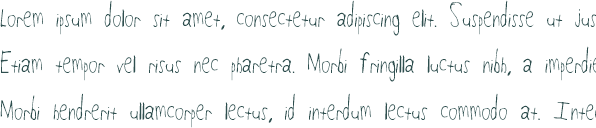 Lorem ipsum dolor sit amet, consectetur adipiscing elit. Suspendisse ut jus
Etiam tempor vel risus nec pharetra. Morbi fringilla luctus nibh, a imperdie
Morbi hendrerit ullamcorper lectus, id interdum lectus commodo at. Inte